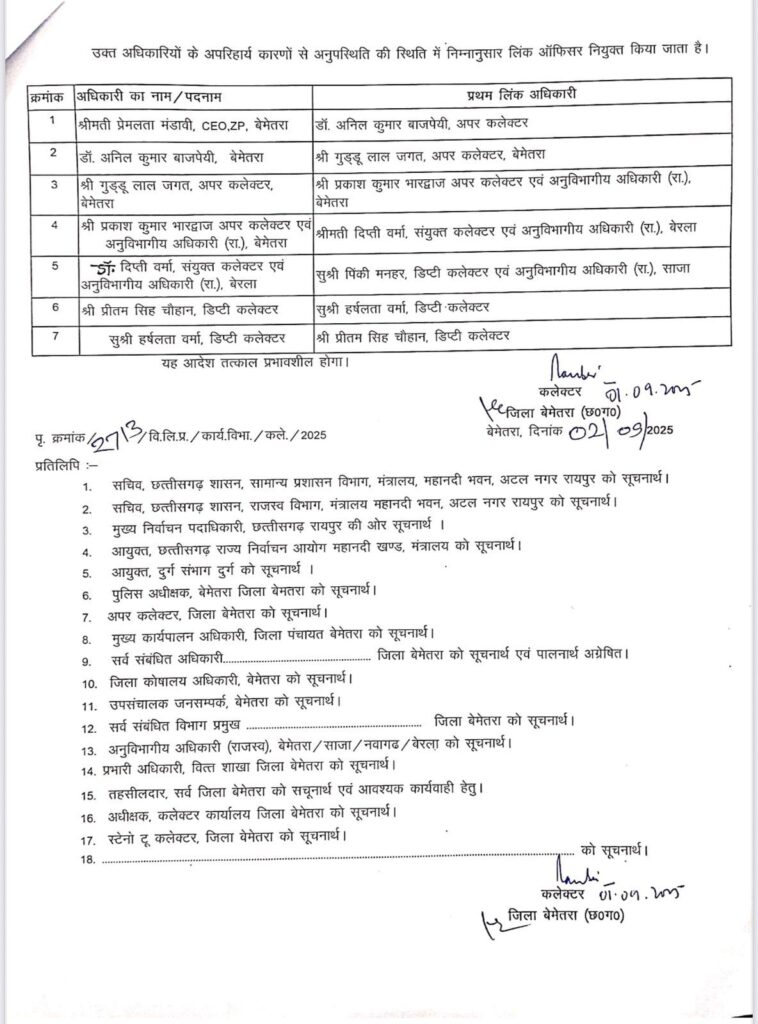 उक्त अधिकारियों के अपरिहार्य कारणों से अनुपस्थिति की स्थिति में निम्नानुसार लिंक ऑफिसर नियुक्त किया जाता है।
क्रमांक अधिकारी का नाम/पदनाम प्रथम लिंक अधिकारी
1 श्रीमती प्रेमलता मंडावी, CEO,ZP, बेमेतरा डॉ. अनिल कुमार बाजपेयी, अपर कलेक्टर
2 डॉ. अनिल कुमार बाजपेयी, बेमेतरा श्री गुड्डू लाल जगत, अपर कलेक्टर, बेमेतरा
3 श्री गुड्डू लाल जगत, अपर कलेक्टर, श्री प्रकाश कुमार भारद्वाज अपर कलेक्टर एवं अनुविभागीय अधिकारी (रा.),
बेमेतरा बेमेतरा
4 श्री प्रकाश कुमार भारद्वाज अपर कलेक्टर एवं श्रीमती दिप्ती वर्मा, संयुक्त कलेक्टर एवं अनुविभागीय अधिकारी (रा.), बेरला
अनुविभागीय अधिकारी (रा.), बेमेतरा
5 डॉ. दिप्ती वर्मा, संयुक्त कलेक्टर एवं सुश्री पिंकी मनहर, डिप्टी कलेक्टर एवं अनुविभागीय अधिकारी (रा.), साजा
अनुविभागीय अधिकारी (रा.), बेरला
6 श्री प्रीतम सिह चौहान, डिप्टी कलेक्टर सुश्री हर्षलता वर्मा, डिप्टी कलेक्टर
7 सुश्री हर्षलता वर्मा, डिप्टी कलेक्टर श्री प्रीतम सिह चौहान, डिप्टी कलेक्टर
यह आदेश तत्काल प्रभावशील होगा।
कलेक्टर 01.09.2025
जिला बेमेतरा (छ0ग0)
पृ. क्रमांक/2713/वि.लि.प्र./कार्य.विभा./कले./2025 बेमेतरा, दिनांक 02/09/2025
प्रतिलिपि :–
1. सचिव, छत्तीसगढ़ शासन, सामान्य प्रशासन विभाग, मंत्रालय, महानदी भवन, अटल नगर रायपुर को सूचनार्थ।
2. सचिव, छत्तीसगढ़ शासन, राजस्व विभाग, मंत्रालय महानदी भवन, अटल नगर रायपुर को सूचनार्थ।
3. मुख्य निर्वाचन पदाधिकारी, छत्तीसगढ़ रायपुर की ओर सूचनार्थ ।
4. आयुक्त, छत्तीसगढ़ राज्य निर्वाचन आयोग महानदी खण्ड, मंत्रालय को सूचनार्थ।
5. आयुक्त, दुर्ग संभाग दुर्ग को सूचनार्थ ।
6. पुलिस अधीक्षक, बेमेतरा जिला बेमतरा को सूचनार्थ।
7. अपर कलेक्टर, जिला बेमेतरा को सूचनार्थ।
8. मुख्य कार्यपालन अधिकारी, जिला पंचायत बेमेतरा को सूचनार्थ।
9. सर्व संबंधित अधिकारी........................................ जिला बेमेतरा को सूचनार्थ एवं पालनार्थ अग्रेषित।
10. जिला कोषालय अधिकारी, बेमेतरा को सूचनार्थ।
11. उपसंचालक जनसम्पर्क, बेमेतरा को सूचनार्थ।
12. सर्व संबंधित विभाग प्रमुख ................................................ जिला बेमेतरा को सूचनार्थ।
13. अनुविभागीय अधिकारी (राजस्व), बेमेतरा/साजा/नवागढ/बेरला को सूचनार्थ।
14. प्रभारी अधिकारी, वित्त शाखा जिला बेमेतरा को सूचनार्थ।
15. तहसीलदार, सर्व जिला बेमेतरा को सचूनार्थ एवं आवश्यक कार्यवाही हेतु।
16. अधीक्षक, कलेक्टर कार्यालय जिला बेमेतरा को सूचनार्थ।
17. स्टेनो टू कलेक्टर, जिला बेमेतरा को सूचनार्थ।
18. ................................................................................ को सूचनार्थ।
कलेक्टर 01.09.2025
जिला बेमेतरा (छ0ग0)